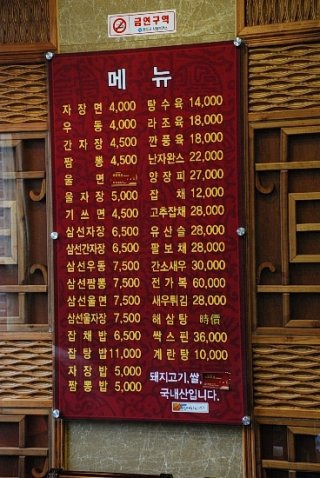 금연구역
메 뉴
자 장 면 4,000
우 동 4,000
간 자 장 4,500
짬 뽕 4,500
울 면
울 자 장 5,000
기 쓰 면 4,500
삼선자장 6,500
삼선간자장 6,500
삼선우동 7,500
삼선짬뽕 7,500
삼선울면 7,500
삼선울자장 7,500
잡 채 밥 6,500
잡 탕 밥 11,000
자 장 밥 5,000
짬 뽕 밥 5,000
탕 수 육 14,000
라 조 육 18,000
깐 풍 육 18,000
난자완스 22,000
양 장 피 27,000
잡 채 12,000
고추잡채 28,000
유 산 슬 28,000
팔 보 채 28,000
간소새우 30,000
전 가 복 60,000
새우튀김 28,000
해 삼 탕 時價
싹 스 핀 36,000
계 란 탕 10,000
돼지고기,쌀,
국내산입니다.